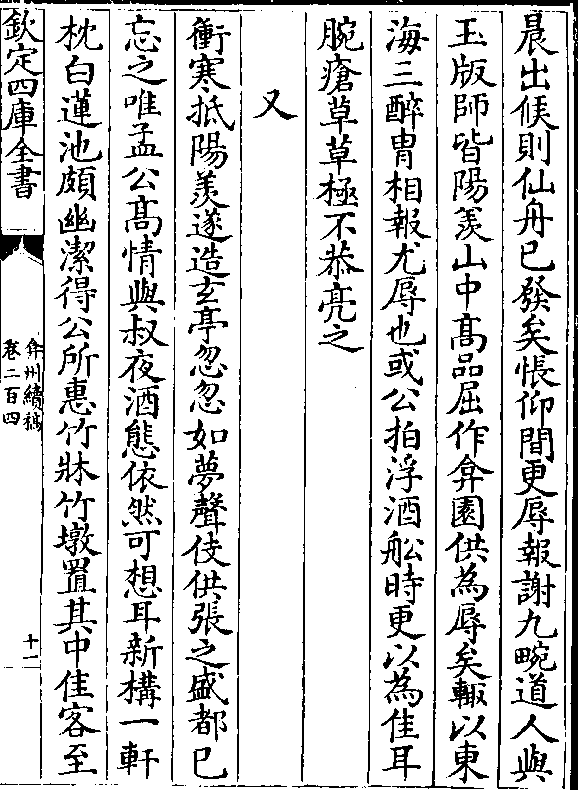 晨出候則仙舟已發矣悵仰間更辱報謝九畹道人與
玉版師皆陽羨山中高品屈作弇園供為辱矣輙以東
海三醉胄相報尤辱也或公拍浮酒舩時更以為佳耳
腕瘡草草極不恭亮之
又
衝寒抵陽羨遂造玄亭忽忽如夢聲伎供張之盛都已
忘之唯孟公高情與叔夜酒態依然可想耳新構一軒
枕白蓮池頗幽潔得公所惠竹牀竹墩置其中佳客至
欽定四庫全書
弇州續稿
卷二百四
十二